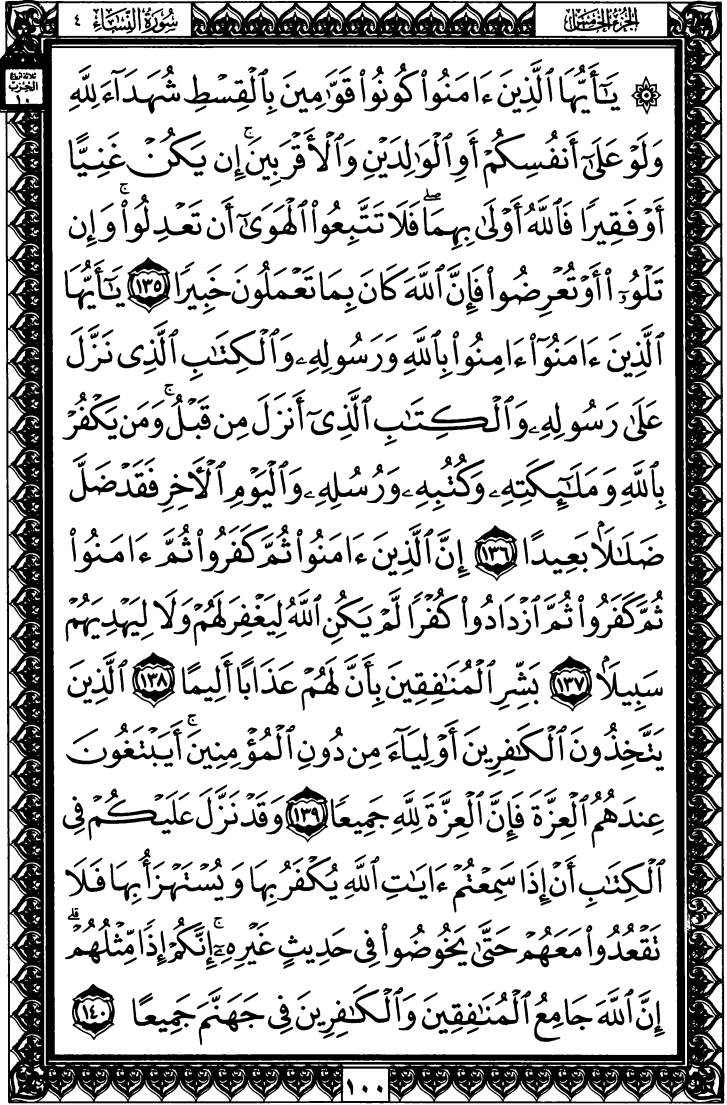 الجزء الخامس
سُورَةُ النِّسَاءِ ٤
ثلاثة أرباع
الحزب
١٠
۞ يَٰٓأَيُّهَا ٱلَّذِينَ ءَامَنُوا۟ كُونُوا۟ قَوَّٰمِينَ بِٱلْقِسْطِ شُهَدَآءَ لِلَّهِ
وَلَوْ عَلَىٰٓ أَنفُسِكُمْ أَوِ ٱلْوَٰلِدَيْنِ وَٱلْأَقْرَبِينَ ۚ إِن يَكُنْ غَنِيًّا
أَوْ فَقِيرًا فَٱللَّهُ أَوْلَىٰ بِهِمَا ۖ فَلَا تَتَّبِعُوا۟ ٱلْهَوَىٰٓ أَن تَعْدِلُوا۟ ۚ وَإِن
تَلْوُۥٓا۟ أَوْ تُعْرِضُوا۟ فَإِنَّ ٱللَّهَ كَانَ بِمَا تَعْمَلُونَ خَبِيرًا ١٣٥ يَٰٓأَيُّهَا
ٱلَّذِينَ ءَامَنُوٓا۟ ءَامِنُوا۟ بِٱللَّهِ وَرَسُولِهِۦ وَٱلْكِتَٰبِ ٱلَّذِى نَزَّلَ
عَلَىٰ رَسُولِهِۦ وَٱلْكِتَٰبِ ٱلَّذِىٓ أَنزَلَ مِن قَبْلُ ۚ وَمَن يَكْفُرْ
بِٱللَّهِ وَمَلَٰٓئِكَتِهِۦ وَكُتُبِهِۦ وَرُسُلِهِۦ وَٱلْيَوْمِ ٱلْـَٔاخِرِ فَقَدْ ضَلَّ
ضَلَٰلًۢا بَعِيدًا ١٣٦ إِنَّ ٱلَّذِينَ ءَامَنُوا۟ ثُمَّ كَفَرُوا۟ ثُمَّ ءَامَنُوا۟
ثُمَّ كَفَرُوا۟ ثُمَّ ٱزْدَادُوا۟ كُفْرًا لَّمْ يَكُنِ ٱللَّهُ لِيَغْفِرَ لَهُمْ وَلَا لِيَهْدِيَهُمْ
سَبِيلًۢا ١٣٧ بَشِّرِ ٱلْمُنَٰفِقِينَ بِأَنَّ لَهُمْ عَذَابًا أَلِيمًا ١٣٨ ٱلَّذِينَ
يَتَّخِذُونَ ٱلْكَٰفِرِينَ أَوْلِيَآءَ مِن دُونِ ٱلْمُؤْمِنِينَ ۚ أَيَبْتَغُونَ
عِندَهُمُ ٱلْعِزَّةَ فَإِنَّ ٱلْعِزَّةَ لِلَّهِ جَمِيعًا ١٣٩ وَقَدْ نَزَّلَ عَلَيْكُمْ فِى
ٱلْكِتَٰبِ أَنْ إِذَا سَمِعْتُمْ ءَايَٰتِ ٱللَّهِ يُكْفَرُ بِهَا وَيُسْتَهْزَأُ بِهَا فَلَا
تَقْعُدُوا۟ مَعَهُمْ حَتَّىٰ يَخُوضُوا۟ فِى حَدِيثٍ غَيْرِهِۦٓ ۚ إِنَّكُمْ إِذًا مِّثْلُهُمْ ۗ
إِنَّ ٱللَّهَ جَامِعُ ٱلْمُنَٰفِقِينَ وَٱلْكَٰفِرِينَ فِى جَهَنَّمَ جَمِيعًا ١٤٠
١٠٠